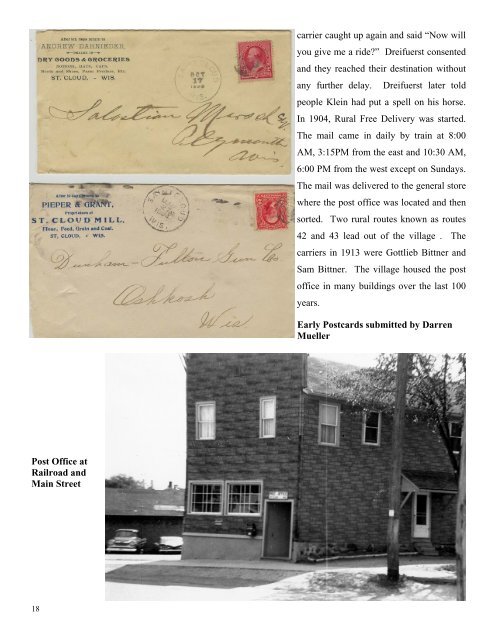 After six days return to
ANDREW DARNIEDER,
DEALER IN
DRY GOODS & GROCERIES
NOTIONS, HATS, CAPS,
Boots and Shoes, Farm Produce, Etc.
ST. CLOUD, - WIS.
OCT
17
WIS.
Plymouth
Wis
After 10 days return to
PIEPER & GRANT,
Proprietors of
ST. CLOUD MILL,
Flour, Feed, Grain and Coal.
ST. CLOUD, - WIS.
WIS.
Dunham - Fulton Gun Co
Oshkosh
Wis
carrier caught up again and said “Now will
you give me a ride?” Dreifuerst consented
and they reached their destination without
any further delay. Dreifuerst later told
people Klein had put a spell on his horse.
In 1904, Rural Free Delivery was started.
The mail came in daily by train at 8:00
AM, 3:15PM from the east and 10:30 AM,
6:00 PM from the west except on Sundays.
The mail was delivered to the general store
where the post office was located and then
sorted. Two rural routes known as routes
42 and 43 lead out of the village . The
carriers in 1913 were Gottlieb Bittner and
Sam Bittner. The village housed the post
office in many buildings over the last 100
years.
Early Postcards submitted by Darren
Mueller
Post Office at
Railroad and
Main Street
18